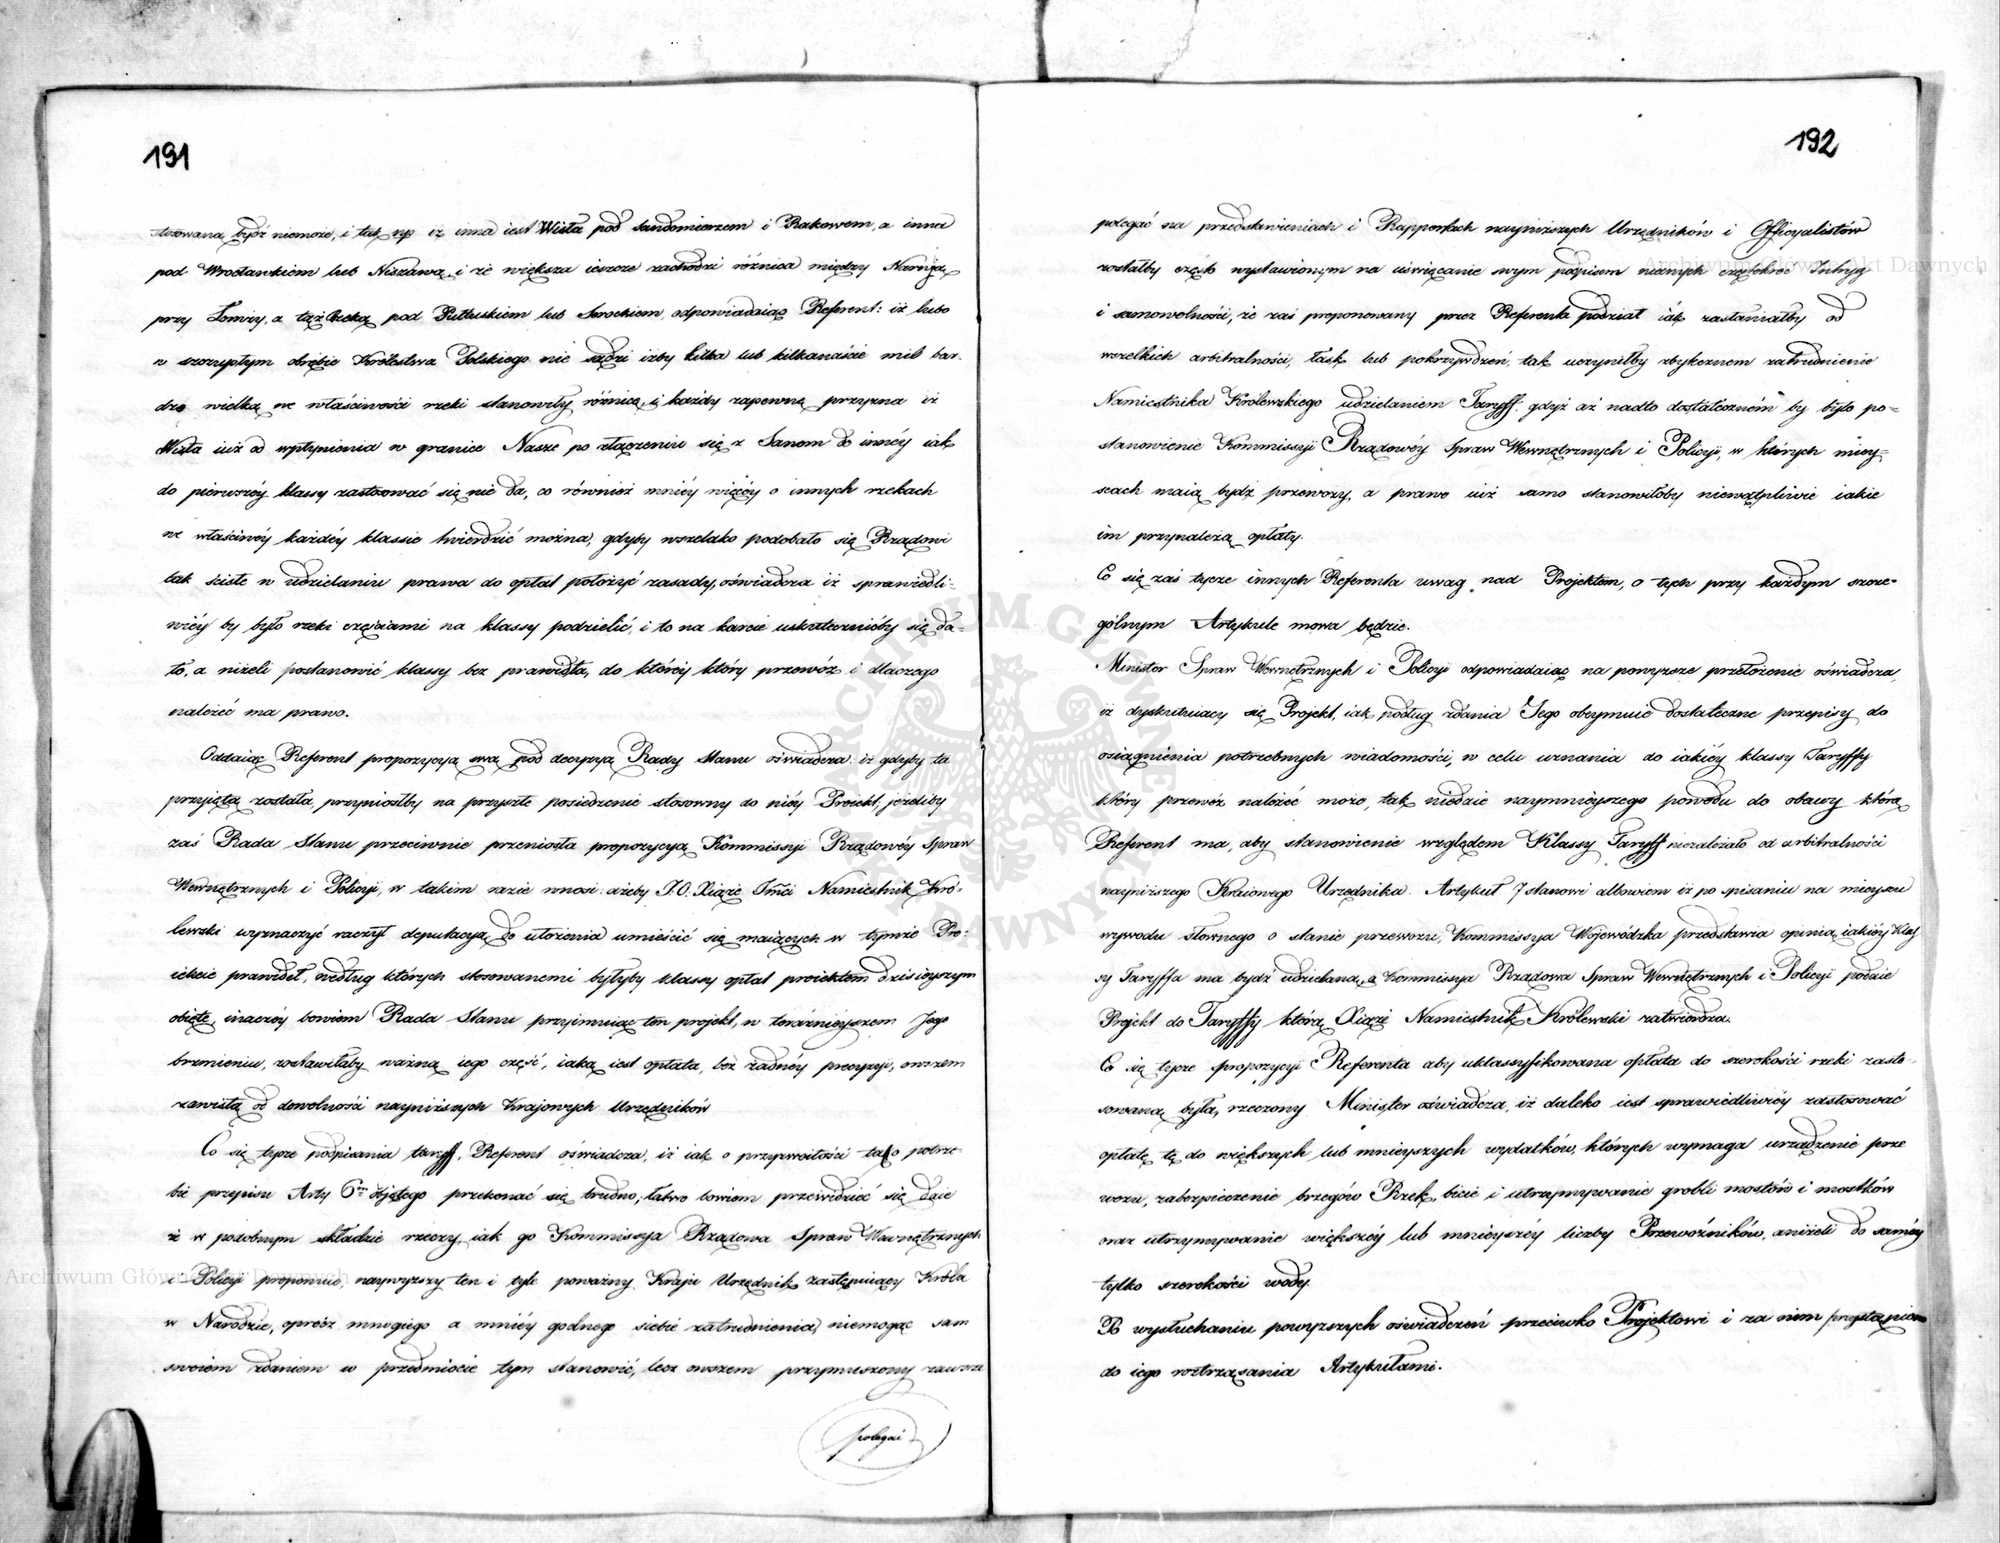 191
stosowana bydź niemoże, i tak np iż inna iest Wisła pod Sandomierzem i Rakowem, a inna
pod Wrocławkiem lub Niszawą, i że większa ieszcze zachodzi różnica między Narwią
przy Łomży, a tąż Rzeką pod Pułtuskiem lub Serockiem, odpowiadaiąc Referent: iż lubo
w szczupłym obrębie Królestwa Polskiego nie sądzi iżby kilka lub kilkanaście mil bar-
dzo wielką we właściwości rzeki stanowiły różnicę, i każdy zapewne przyzna iż
Wisła iuż od wpłynienia w granice Nasze po złączeniu się z Sanem do innéy iak
do pierwszéy klassy zastosować się nie da, co również mniéy więcéy o innych rzekach
we właściwéy każdéy klassie twierdzić można, gdyby wszelako podobało się Rządowi
tak ściśle w udzielaniu prawa do opłat położyć zasady, oświadcza iż sprawiedli-
wiéy by było rzeki częściami na klassy podzielić, i to na karcie uskutecznićby się da-
ło, a niżeli postanowić klassy bez prawidła, do któréy który przewóz i dlaczego
należeć ma prawo.
Oddaiąc Referent propozycyą swą pod decyzyą Rady Stanu oświadcza: iż gdyby ta
przyiętą została, przyniosłby na przyszłe posiedzenie stosowny do niéy Proiekt, jeżeliby
zaś Rada Stanu przeciwnie przeniosła propozycyą Kommissyi Rządowéy Spraw
Wewnętrznych i Policyi, w takim razie wnosi ażeby J.O. Xiąże Jmci Namiestnik Kró-
lewski wyznaczyć raczył deputacyą do ułożenia umieścić się maiących w tymże Pro-
iekcie prawideł, według których stosowanemi byłyby klassy opłat proiektem dzisieyszym
obięte, inaczéy bowiem Rada Stanu przyimuiąc ten projekt, w teraźnieyszem Jego
brzmieniu, zostawiłaby ważną iego część, iaką iest opłata, bez żadnéy precyzyi, owszem
zawisłą od dowolności nayniższych Krajowych Urzędników
Co się tycze podpisania taryff, Referent oświadcza, iż iak o przyzwoitości tak o potrze-
bie przepisu Arty 6m objętego przekonać się trudno; łatwo bowiem przewidzieć się daie
że w podobnym składzie rzeczy, iak go Kommissya Rządowa Spraw Wewnętrznych
i Policyi proponuie, naywyższy ten i tyle poważny Kraju Urzędnik zastępuiący Króla
w Narodzie, oprócz mnogiego a mniéy godnego siebie zatrudnienia, niemogąc sam
swoiem zdaniem w przedmiocie tym stanowić, lecz owszem przymuszony zawsze
polegać
192
polegać na przedstawieniach i Rapportach nayniższych Urzędników i Officyalistów
zostałby często wystawionym na uświęcanie swym podpisem niecnych częstokroć Intryg
i samowolności, że zaś proponowany przez Referenta podział iak zasłaniałby od
wszelkich arbitralności, łask lub pokrzywdzeń, tak uczyniłby zbytecznem zatrudnienie
Namiestnika Królewskiego udzielaniem Taryff, gdyż aż nadto dostatecznem by było po-
stanowienie Kommissyi Rządowéy Spraw Wewnętrznych i Policyi, w których miey-
scach maią bydź przewozy, a prawo iuż samo stanowiłoby niewątpliwie iakie
im przynależą opłaty.
Co się zaś tycze innych Referenta uwag nad Projektem, o tych przy każdym szcze-
gólnym Artykule mowa będzie.
Minister Spraw Wewnętrznych i Policyi odpowiadaiąc na powyższe przełożenie oświadcza,
iż dyskutuiący się Projekt, iak podług zdania Jego obeymuie dostateczne przepisy do
osiągnienia potrzebnych wiadomości, w celu uznania do iakiéy klassy Taryffy
który przewóz należeć może, tak niedaie naymnieyszego powodu do obawy którą
Referent ma, aby stanowienie względem Klassy Taryff niezależało od arbitralności
nayniższego Kraiowego Urzędnika. Artykuł 7 stanowi albowiem iż po spisaniu na mieyscu
wywodu słownego o stanie przewozu, Kommissya Wojewódzka przedstawia opinią iakiéy Klas
sy Taryffa ma bydź udzielana, a Kommissya Rządowa Spraw Wewnętrznych i Policyi podaie
Projekt do Taryffy którą Xiążę Namiestnik Królewski zatwierdza.
Co się tycze propozycyi Referenta aby uklassyfikowana opłata do szerokości rzeki zasto-
sowaną była, rzeczony Minister oświadcza, iż daleko iest sprawiedliwiéy zastosować
opłatę tę do większych lub mnieyszych wydatków, których wymaga urządzenie prze
wozu, zabezpieczenie brzegów Rzek, bicie i utrzymywanie grobli mostów i mostków
oraz utrzymywanie większéy lub mnieyszéy liczby Przewoźników, aniżeli do saméy
tylko szerokości wody.
Po wysłuchaniu powyższych oświadczeń przeciwko Projektowi i za nim przystąpiono
do iego roztrząsania Artykułami.
Archiwum Główne Akt Dawnych